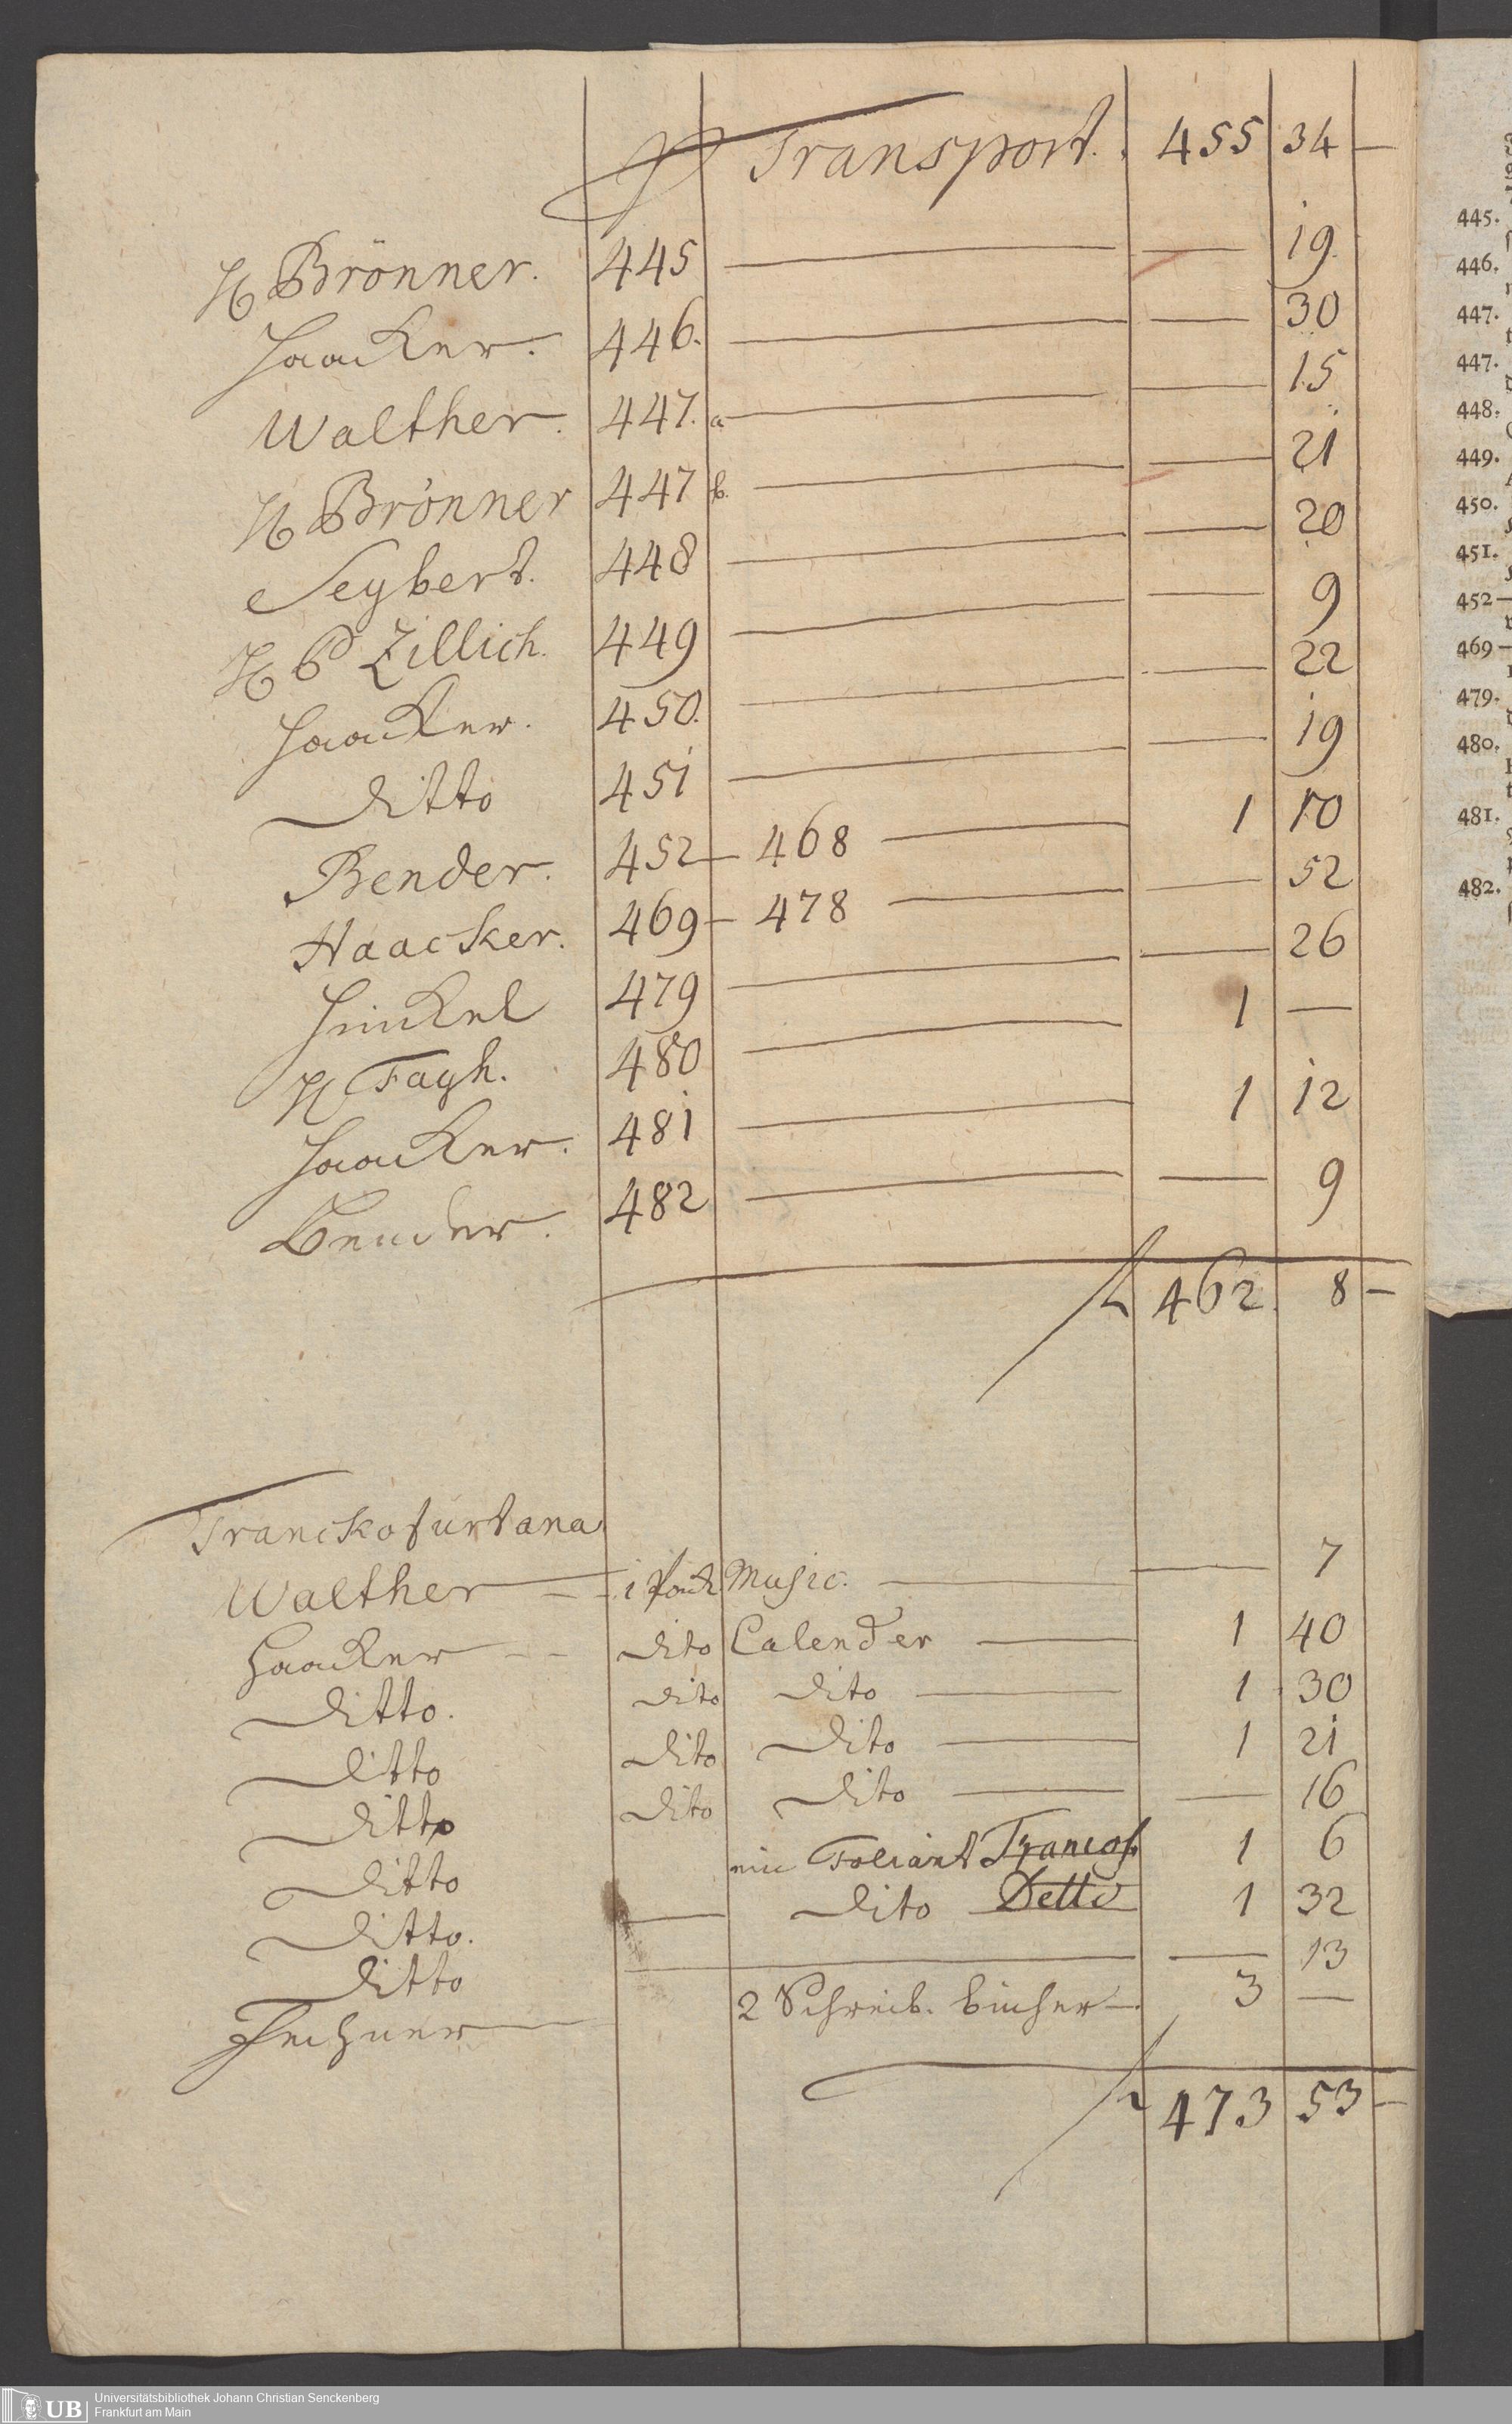 P Transport. 455 34 —
H Brönner. 445 — — 19.
Haacker. 446. — — 30
Walther. 447. a — — 15
H Brönner 447 b. — — 21
Seybert. 448 — — 20
H P Zillich. 449 — — 9
Haacker. 450. — — 22
Ditto 451 — — 19
Bender. 452 — 468 — 1 10
Haacker. 469 — 478 — — 52
Hinckel 479 — — 26
H Fayh. 480 — 1 —
Haacker. 481 — 1 12
Bender. 482 — — 9
f 462. 8 —
Franckofurtana
Walther — 1 Music. — — 7
Haacker — dito Calender — 1 40
Ditto. dito dito — 1 30
Ditto dito dito — 1 21
Ditto dito dito — — 16
Ditto ein Foliant Francof. 1 6
Ditto. — dito Detto 1 32
Ditto — — 13
Fechner — 2 Schreib. bücher — 3 —
f 473 53 —
445.
446.
447.
447.
448.
449.
450.
451.
452 —
469 —
479.
480.
481.
482.
UB Universitätsbibliothek Johann Christian Senckenberg
Frankfurt am Main